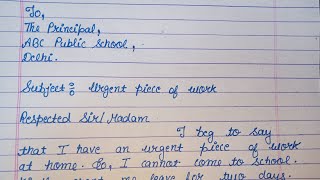 To,
The Principal,
ABC Public School,
Delhi.
Subject : Urgent piece of work
Respected Sir/Madam
I beg to say
that I have an urgent piece of work
at home. So, I cannot come to school.
me leave for two days.